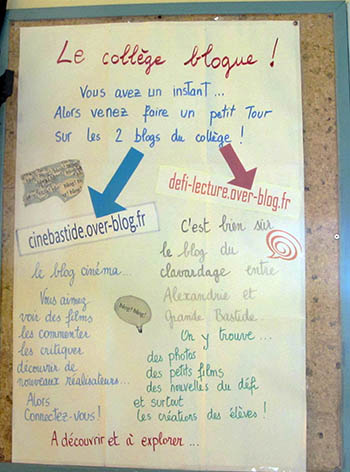 Le collège blogue !
Vous avez un instant ...
Alors venez faire un petit Tour
sur les 2 blogs du collège !
cinebastide.over-blog.fr
defi-lecture.over-blog.fr
le blog cinéma ...
Vous aimez
voir des films
les commenter
les critiquer
découvrir de
nouveaux réalisateurs ...
Alors
Connectez-vous !
C'est bien sûr
le blog du
clavardage entre
Alexandrie et
Grande Bastide
On y trouve ...
des photos
des petits films
des nouvelles du défi
et surtout
les créations des élèves !
blog! blog!
A découvrir et à explorer ...